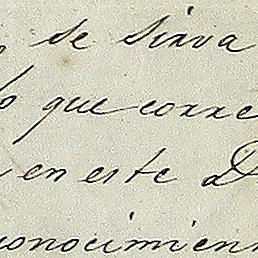 se sirva
lo que corre
en este D
conocimien